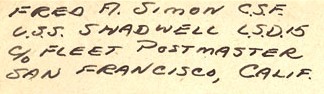 FRED A. SIMON C.S.F.
U.S.S. SHADWELL L.S.D.15
c/o FLEET POSTMASTER
SAN FRANCISCO, CALIF.